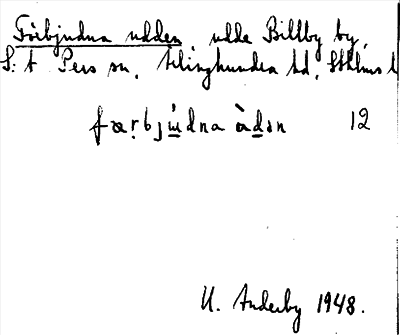 Förbjudna udden udde Billby by,
S:t Pers sn, Seminghundra hd, Sthlms l
færbju̲dna ùd̲ən 12
U. Anderby 1948.